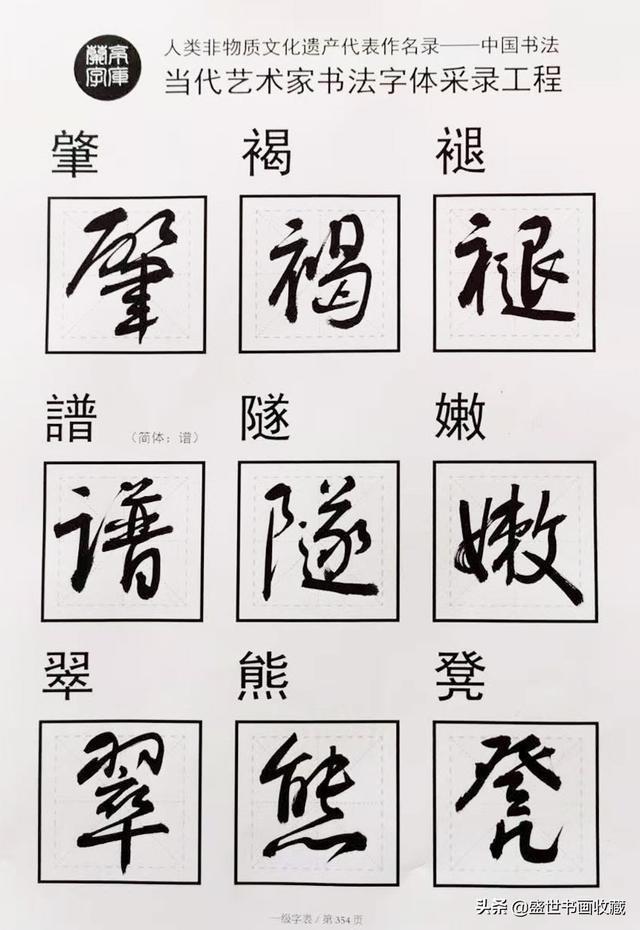 蘭亭
字庫
人类非物质文化遗产代表作名录——中国书法
当代艺术家书法字体采录工程
肇 褐 褪
肇 褐 褪
譜 (简体：谱) 隧 嫩
譜 隧 嫩
翠 熊 凳
翠 熊 凳
一级字表 / 第 354 页
头条 @盛世书画收藏